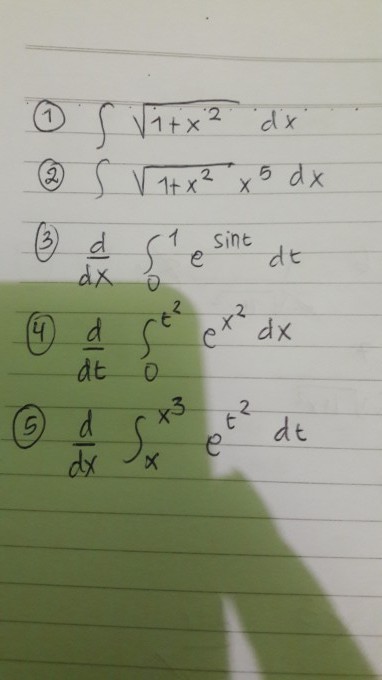 ① ∫ √(1+x²) dx
② ∫ √(1+x²) x⁵ dx
③ d/dx ∫₀¹ e^(sint) dt
④ d/dt ∫₀^(t²) e^(x²) dx
⑤ d/dx ∫ₓ^(x³) e^(t²) dt